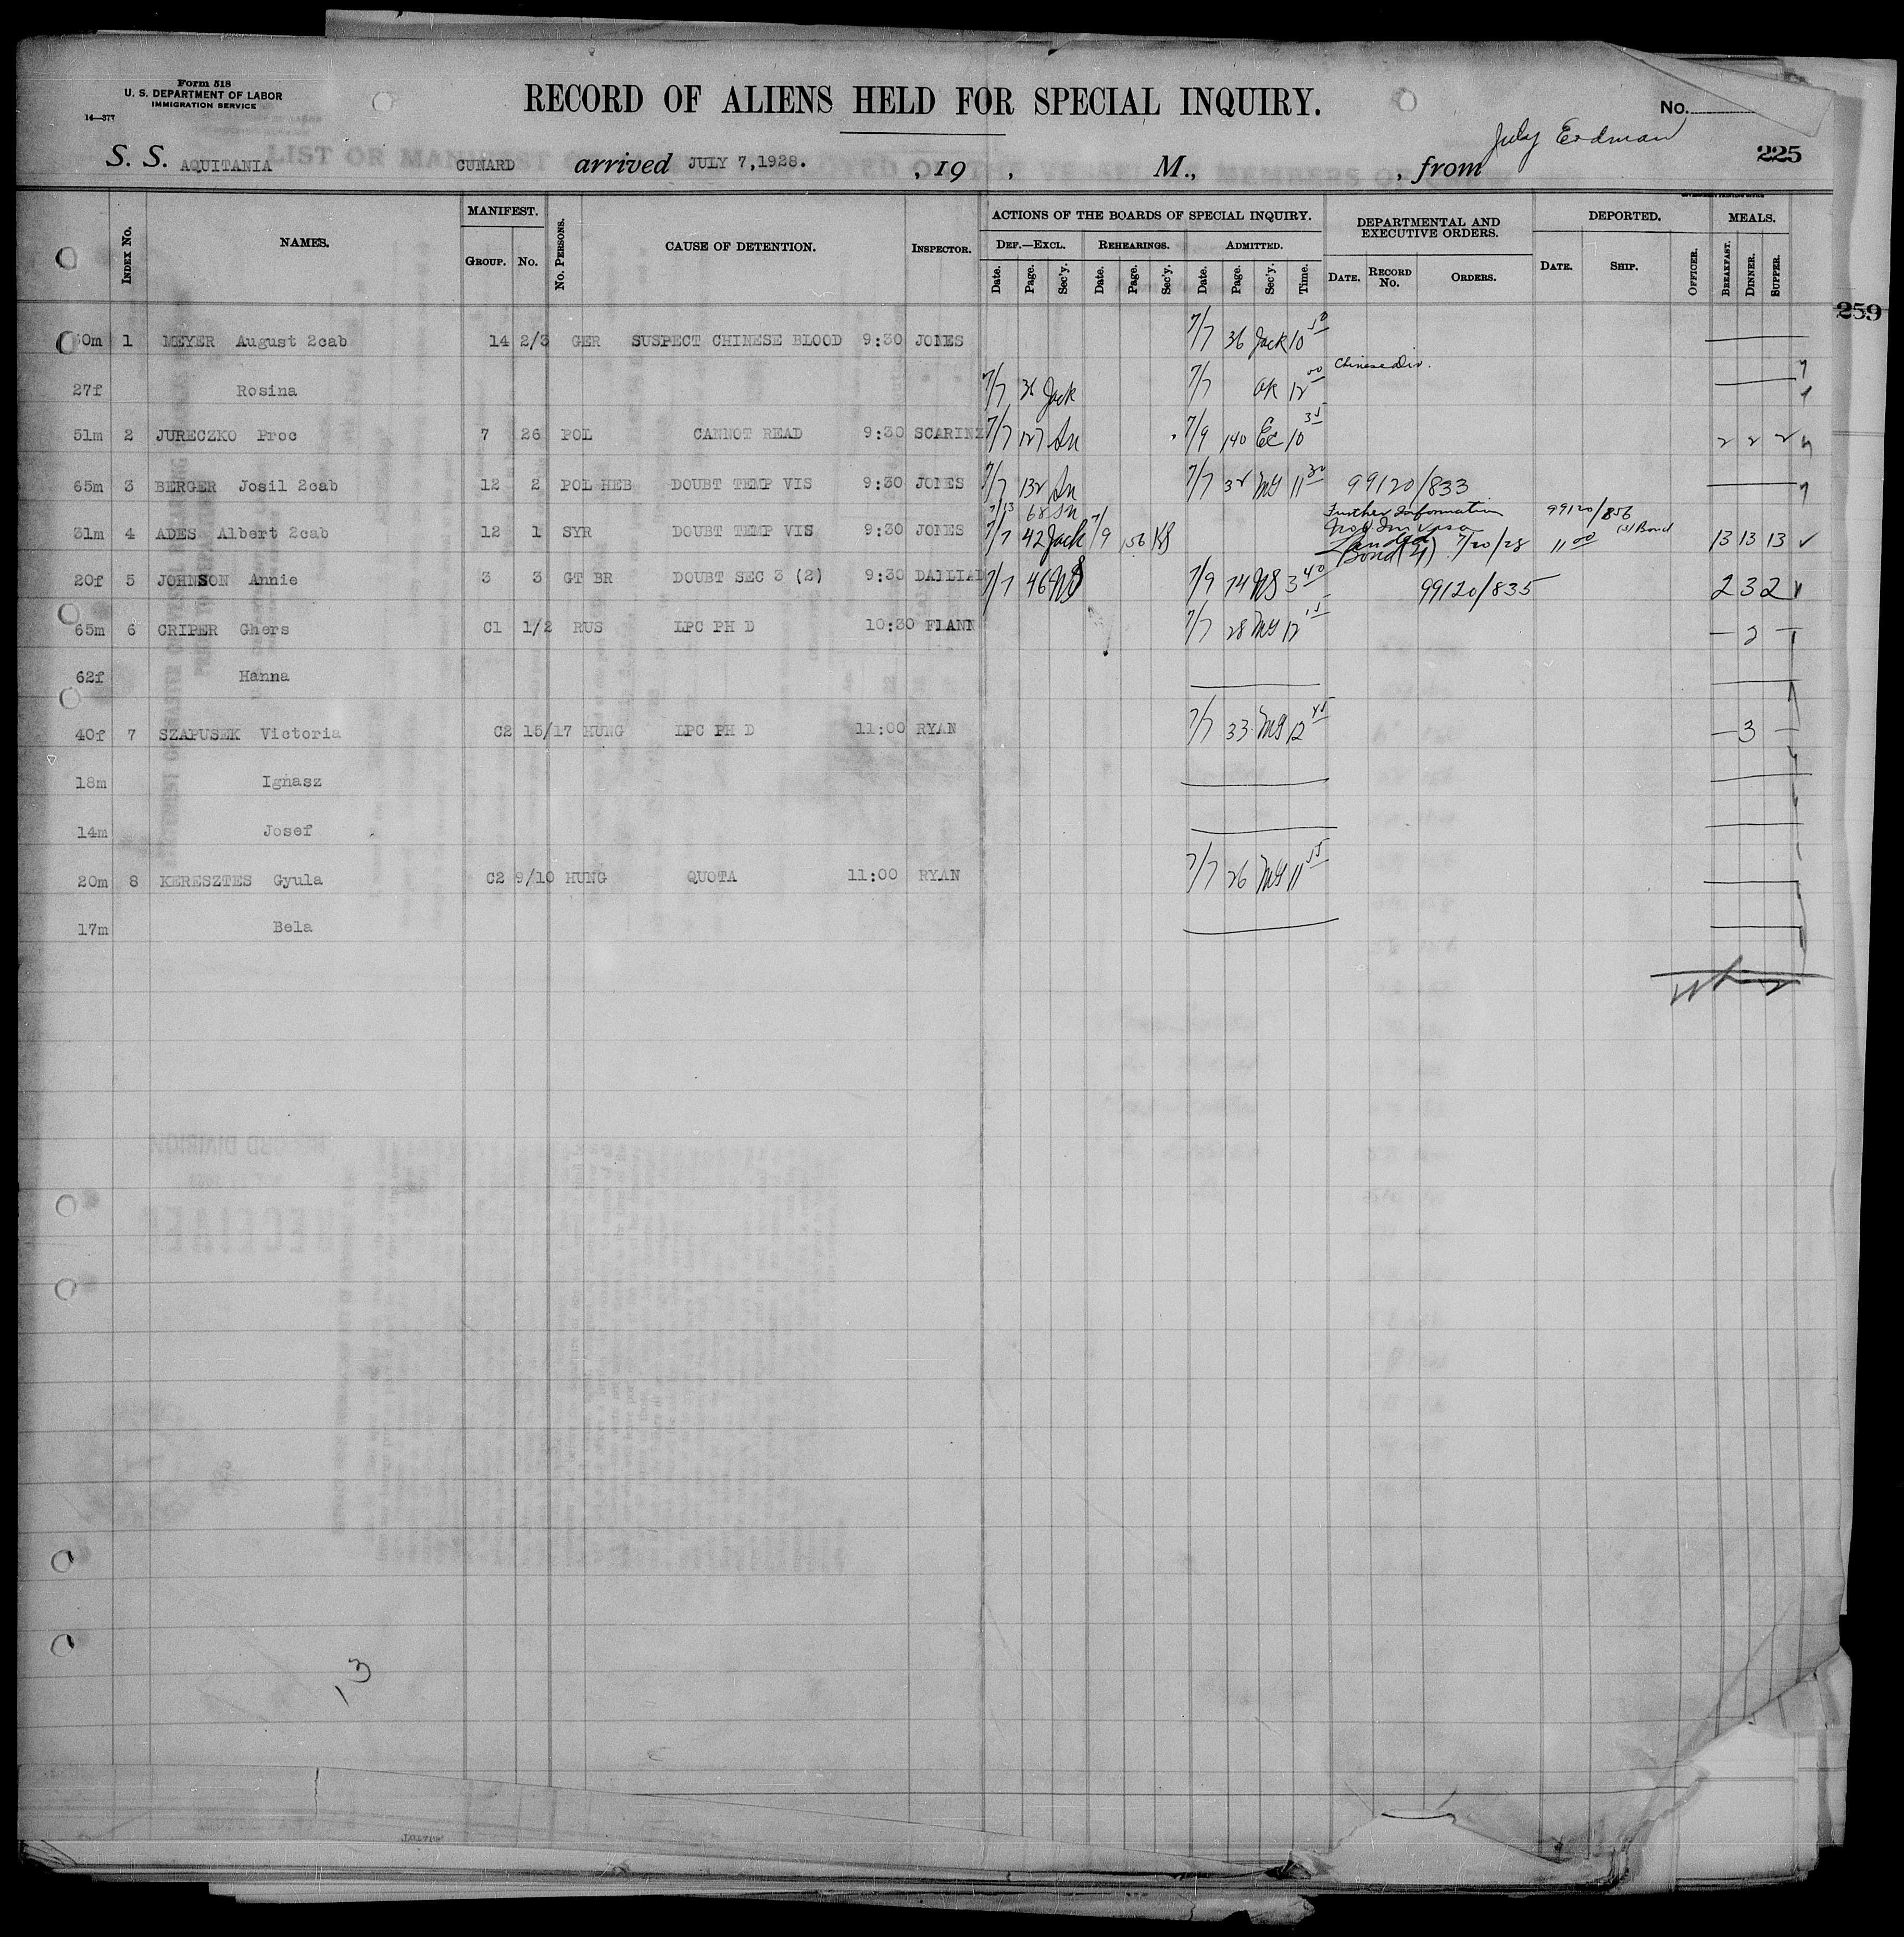 Form 518
U. S. DEPARTMENT OF LABOR
IMMIGRATION SERVICE
14—377
RECORD OF ALIENS HELD FOR SPECIAL INQUIRY.
No.
July Erdman
S. S. AQUITANIA CUNARD arrived JULY 7,1928. , 19 , M., , from 225
INDEX No. NAMES. MANIFEST. GROUP. No. No. PERSONS. CAUSE OF DETENTION. INSPECTOR. ACTIONS OF THE BOARDS OF SPECIAL INQUIRY. DEPARTMENTAL AND EXECUTIVE ORDERS. DEPORTED. MEALS.
DEF.—EXCL. REHEARINGS. ADMITTED.
Date. Page. Sec'y. Date. Page. Sec'y. Date. Page. Sec'y. Time. DATE. RECORD No. ORDERS. DATE. SHIP. OFFICER. BREAKFAST. DINNER. SUPPER.
259
30m 1 MEYER August 2cab 14 2/3 GER SUSPECT CHINESE BLOOD 9:30 JONES 7/7 36 Jack 10 50
Chinese Div.
27f Rosina 7/7 36 Jack 7/7 OK 12 00
51m 2 JURECZKO Proc 7 26 POL CANNOT READ 9:30 SCARINI 7/7 127 Sn 7/9 140 EC 10 35 2 2 2
65m 3 BERGER Josil 2cab 12 2 POL HEB DOUBT TEMP VIS 9:30 JONES 7/7 132 Sn 7/7 32 MG 11 30 99120/833
7/13 68 Sn Further Information 99120/856
31m 4 ADES Albert 2cab 12 1 SYR DOUBT TEMP VIS 9:30 JONES 7/7 42 Jack 7/9 156 KS Landed Bond 7/20/28 11 00 Bond 13 13 13
20f 5 JOHNSON Annie 3 3 GT BR DOUBT SEC 3 (2) 9:30 DALLIAN 7/7 46 NS 7/9 74 NS 3 40 99120/835 2 3 2
65m 6 CRIPER Ghers C1 1/2 RUS LPC PH D 10:30 FLANN 7/7 28 MG 12 15 — 2 —
62f Hanna
40f 7 SZAPUSEK Victoria C2 15/17 HUNG LPC PH D 11:00 RYAN 7/7 33 MG 12 45 — 3 —
18m Ignasz
14m Josef
20m 8 KERESZTES Gyula C2 9/10 HUNG QUOTA 11:00 RYAN 7/7 26 MG 11 55
17m Bela
13